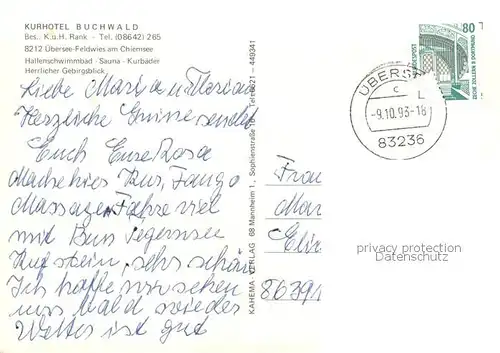 KURHOTEL BUCHWALD
Bes.. K.u.H. Rank - Tel. (08642) 265
8212 Übersee-Feldwies am Chiemsee
Hallenschwimmbad - Sauna - Kurbäder
Herrlicher Gebirgsblick
Liebe Maria u Florian
Herzliche Grüsse sendet
Euch Eure Rosa
Mache hier Kur, Fango
Massagen Fahre viel
mit Bus Tegernsee
Kufstein, sehr schön
Ich hoffe wir sehen
uns bald wieder
Wetter ist gut
KAHEMA VERLAG 68 Mannheim 1, Sophienstraße Tel. 0621 - 449341
80
DEUTSCHE BUNDESPOST
ZECHE ZOLLERN II DORTMUND
ÜBERS
c L
-9.10.93-18
83236
Frau
Mar
86391
privacy protection
Datenschutz